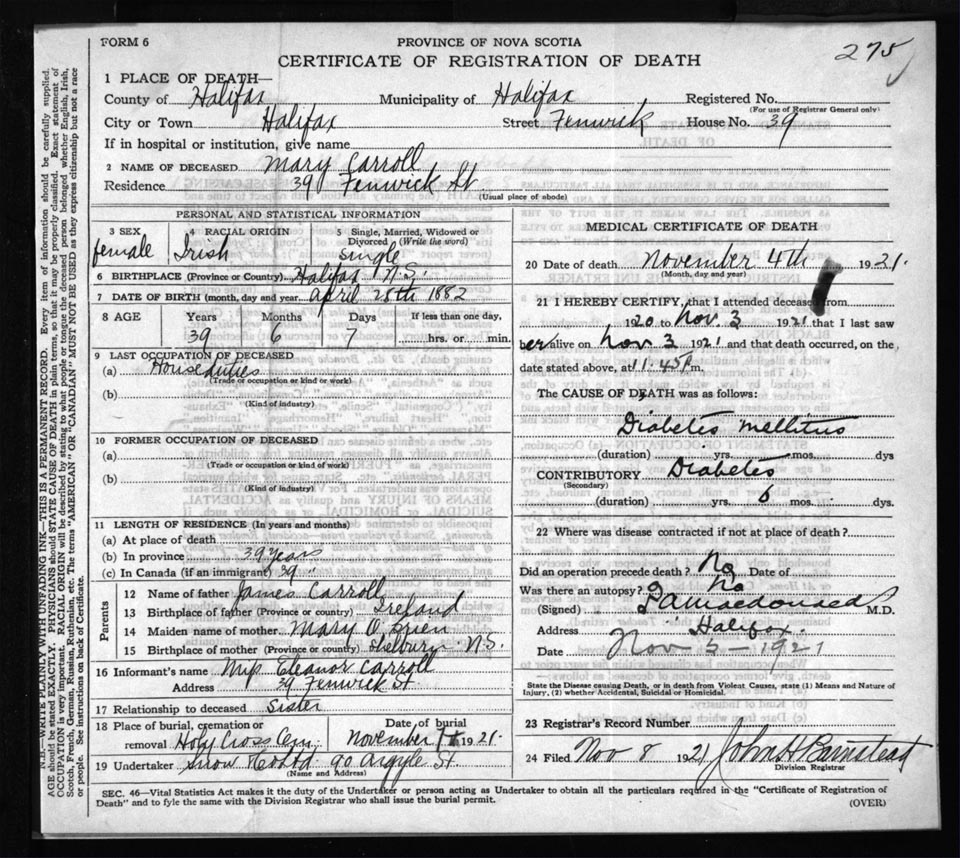 FORM 6
PROVINCE OF NOVA SCOTIA
275
CERTIFICATE OF REGISTRATION OF DEATH
1 PLACE OF DEATH—
County of Halifax Municipality of Halifax Registered No.
(For use of Registrar General only)
City or Town Halifax Street Fenwick House No. 39
If in hospital or institution, give name
2 NAME OF DECEASED Mary Carroll
Residence 39 Fenwick St
(Usual place of abode)
PERSONAL AND STATISTICAL INFORMATION
3 SEX 4 RACIAL ORIGIN 5 Single, Married, Widowed or Divorced (Write the word)
female Irish single
6 BIRTHPLACE (Province or Country) Halifax N.S.
7 DATE OF BIRTH (month, day and year April 28th 1882
8 AGE Years Months Days If less than one day,
39 6 7 hrs. or min.
9 LAST OCCUPATION OF DECEASED
(a) House duties
(Trade or occupation or kind of work)
(b)
(Kind of industry)
10 FORMER OCCUPATION OF DECEASED
(a)
(Trade or occupation or kind of work)
(b)
(Kind of industry)
11 LENGTH OF RESIDENCE (In years and months)
(a) At place of death
(b) In province 39 years
(c) In Canada (if an immigrant) 39 "
Parents
12 Name of father James Carroll
13 Birthplace of father (Province or country) Ireland
14 Maiden name of mother Mary O'Brien
15 Birthplace of mother (Province or country) Shelburn N.S.
16 Informant's name Eleanor Carroll
Address 39 Fenwick St
17 Relationship to deceased Sister
18 Place of burial, cremation or removal Holy Cross Cem. Date of burial November 1921.
19 Undertaker Snow 90 Argyle St.
(Name and Address)
MEDICAL CERTIFICATE OF DEATH
20 Date of death November 4th 1921.
(Month, day and year)
21 I HEREBY CERTIFY, that I attended deceased from
1920 to Nov. 3 1921 that I last saw
her alive on Nov 3 1921 and that death occurred, on the
date stated above, at 11.45 P m.
The CAUSE OF DEATH was as follows:
Diabetes mellitus
(duration) yrs. mos. dys
CONTRIBUTORY Diabetes
(Secondary)
(duration) yrs. 6 mos. dys.
22 Where was disease contracted if not at place of death?
Did an operation precede death? No Date of
Was there an autopsy? No
(Signed) M.D.
Address Halifax.
Date Nov 5 - 1921
State the Disease causing Death, or in death from Violent Causes, state (1) Means and Nature of
Injury, (2) whether Accidental, Suicidal or Homicidal.
23 Registrar's Record Number
24 Filed Nov 8 1921 John H Barnstead
Division Registrar
SEC. 46—Vital Statistics Act makes it the duty of the Undertaker or person acting as Undertaker to obtain all the particulars required in the "Certificate of Registration of
Death" and to fyle the same with the Division Registrar who shall issue the burial permit.
(OVER)
N.B.—WRITE PLAINLY WITH UNFADING INK—THIS IS A PERMANENT RECORD. Every item of information should be carefully supplied.
AGE should be stated EXACTLY. PHYSICIANS should STATE CAUSE OF DEATH in plain terms, so that it may be properly classified. Exact statement of
OCCUPATION is very important. RACIAL ORIGIN will be described by stating to what people or tongue the deceased person belonged whether English, Irish,
Scotch, French, German, Russian, Ruthenian, etc. The terms "AMERICAN" OR "CANADIAN" MUST NOT BE USED as they express citizenship but not a race
or people. See instructions on back of Certificate.